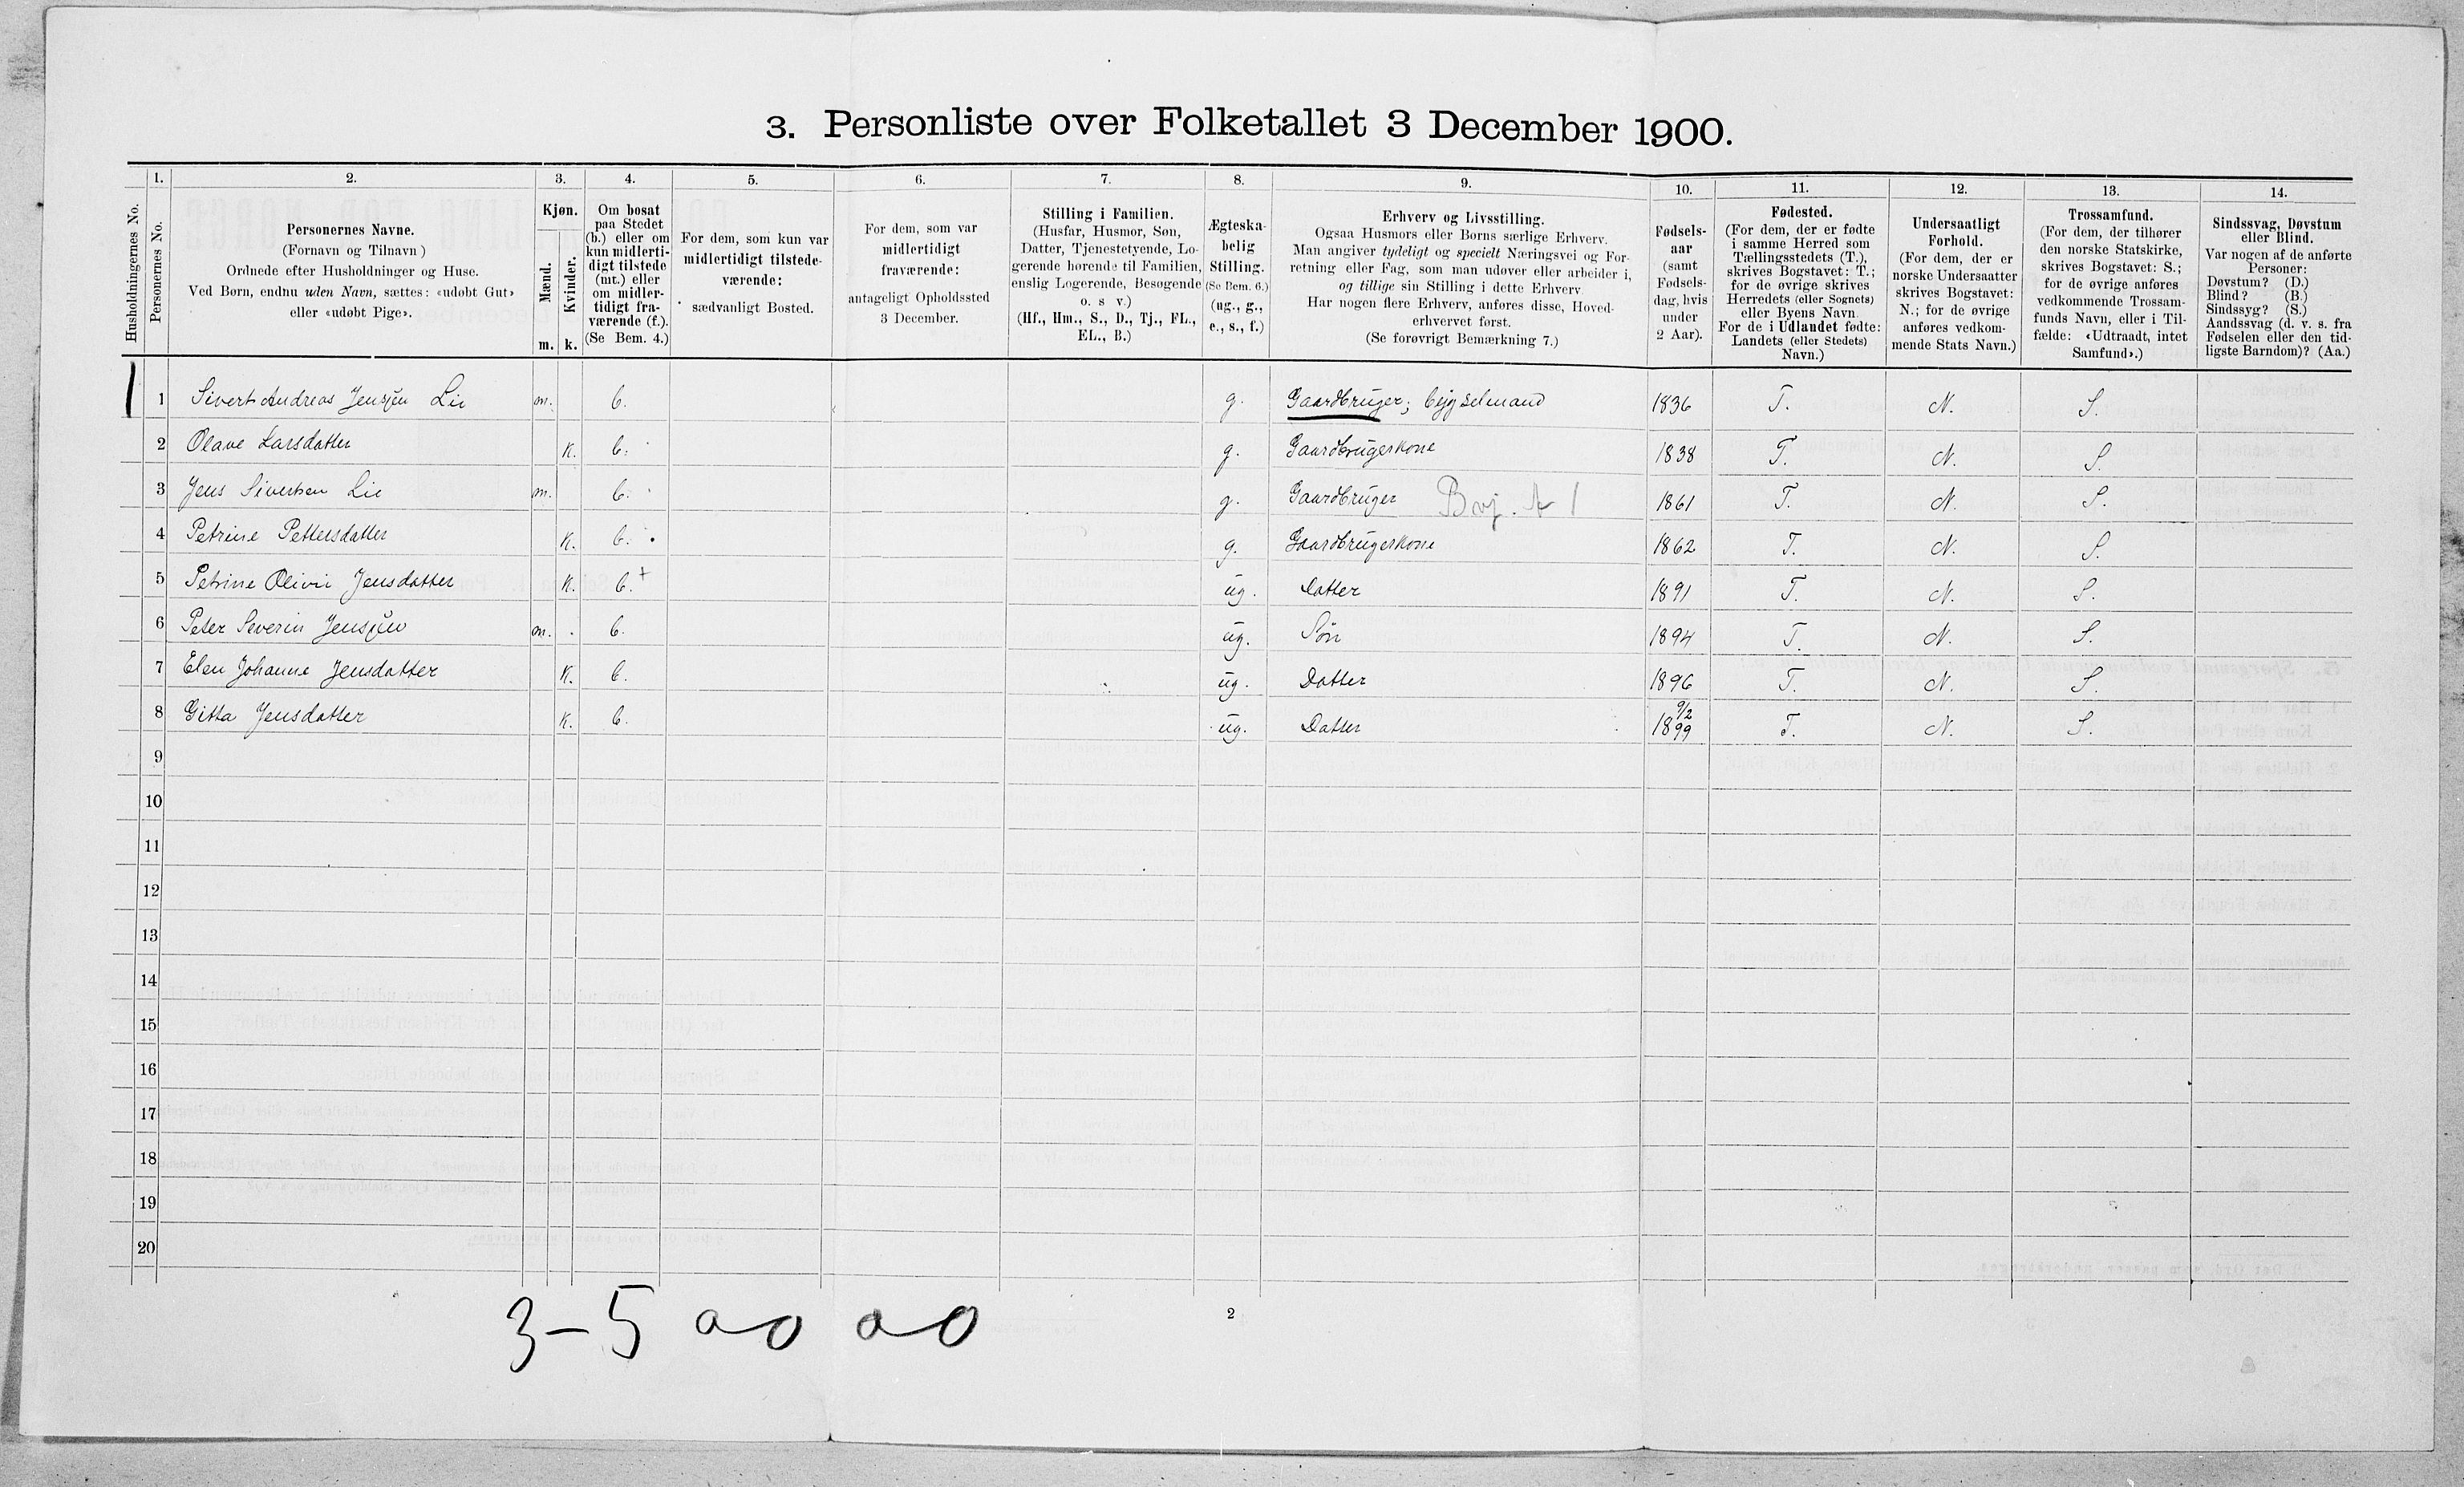 3. Personliste over Folketallet 3 December 1900.
Husholdningernes No.
1.
Personernes No.
2.
Personernes Navne.
(Fornavn og Tilnavn)
Ordnede efter Husholdninger og Huse.
Ved Børn, endnu uden Navn, sættes: «udøbt Gut»
eller «udøbt Pige».
3.
Kjøn.
Mænd.
Kvinder.
m. k.
4.
Om bosat
paa Stedet
(b.) eller om
kun midlerti-
digt tilstede
(mt.) eller
om midler-
tidigt fra-
værende (f.).
(Se Bem. 4.)
5.
For dem, som kun var
midlertidigt tilstede-
værende:
sædvanligt Bosted.
6.
For dem, som var
midlertidigt
fraværende:
antageligt Opholdssted
3 December.
7.
Stilling i Familien.
(Husfar, Husmor, Søn,
Datter, Tjenestetyende, Lo-
gerende hørende til Familien,
enslig Logerende, Besøgende
o. s v.)
(Hf., Hm., S., D., Tj., FL.,
EL., B.)
8.
Ægteska-
belig
Stilling.
(Se Bem. 6.)
(ug., g.,
e., s., f.)
9.
Erhverv og Livsstilling.
Ogsaa Husmors eller Børns særlige Erhverv.
Man angiver tydeligt og specielt Næringsvei og For-
retning eller Fag, som man udøver eller arbeider i,
og tillige sin Stilling i dette Erhverv.
Har nogen flere Erhverv, anføres disse, Hoved-
erhvervet først.
(Se forøvrigt Bemærkning 7.)
10.
Fødsels-
aar
(samt
Fødsels-
dag, hvis
under
2 Aar).
11.
Fødested.
(For dem, der er fødte
i samme Herred som
Tællingsstedets (T.),
skrives Bogstavet: T.;
for de øvrige skrives
Herredets (eller Sognets)
eller Byens Navn.
For de i Udlandet fødte:
Landets (eller Stedets)
Navn.)
12.
Undersaatligt
Forhold.
(For dem, der er
norske Undersaatter
skrives Bogstavet:
N.; for de øvrige
anføres vedkom-
mende Stats Navn.)
13.
Trossamfund.
(For dem, der tilhører
den norske Statskirke,
skrives Bogstavet: S.;
for de øvrige anføres
vedkommende Trossam-
funds Navn, eller i Til-
fælde: «Udtraadt, intet
Samfund».)
14.
Sindssvag, Døvstum
eller Blind.
Var nogen af de anførte
Personer:
Døvstum? (D.)
Blind? (B.)
Sindssyg? (S.)
Aandssvag (d. v. s. fra
Fødselen eller den tid-
ligste Barndom)? (Aa.)
1 Sivert Andreas Jensøn Lie m. b. g. Gaardbruger; bygselmand 1836 T. N. S.
2 Olave Larsdatter k. b. g. Gaardbrugerkone 1838 T. N. S.
3 Jens Sivertsen Lie m. b. g. Gaardbruger 1861 T. N. S.
4 Petrine Pettersdatter k. b. g. Gaardbrugerkone 1862 T. N. S.
5 Petrine Olivie Jensdatter k. b. + ug. Datter 1891 T. N. S.
6 Peter Severin Jensøn m. b. ug. Søn 1894 T. N. S.
7 Elen Johanne Jensdatter k. b. ug. Datter 1896 T. N. S.
8 Gitta Jensdatter k. b. ug. Datter 9/2 1899 T. N. S.
9
10
11
12
13
14
15
16
17
18
19
20
3-5 00 00
2